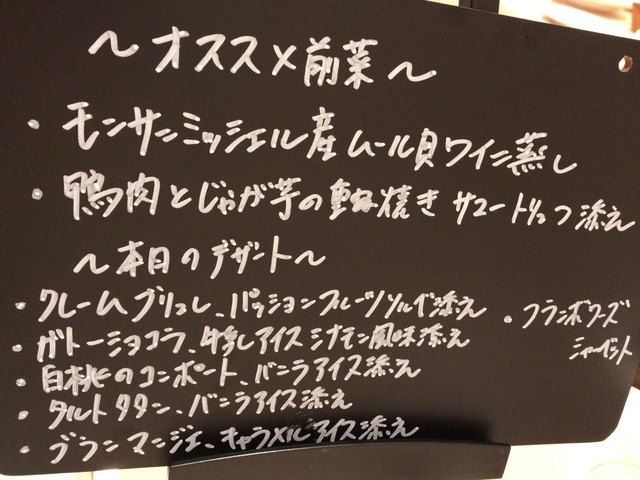 〜オススメ前菜〜
・モンサンミッシェル産ムール貝ワイン蒸し
・鴨肉とじゃが芋の重ね焼き サマートリュフ添え
〜本日のデザート〜
・クレームブリュレ、パッションフルーツソルベ添え
・ガトーショコラ、牛乳アイスシナモン風味添え
・白桃のコンポート、バニラアイス添え
・タルトタタン、バニラアイス添え
・ブランマンジェ、キャラメルアイス添え
・フランボワーズ
シャーベット